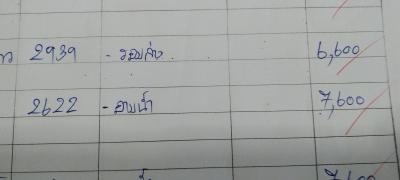 ว 2939 - รอบส่ง 6,600
2622 - อาบน้ำ 7,600